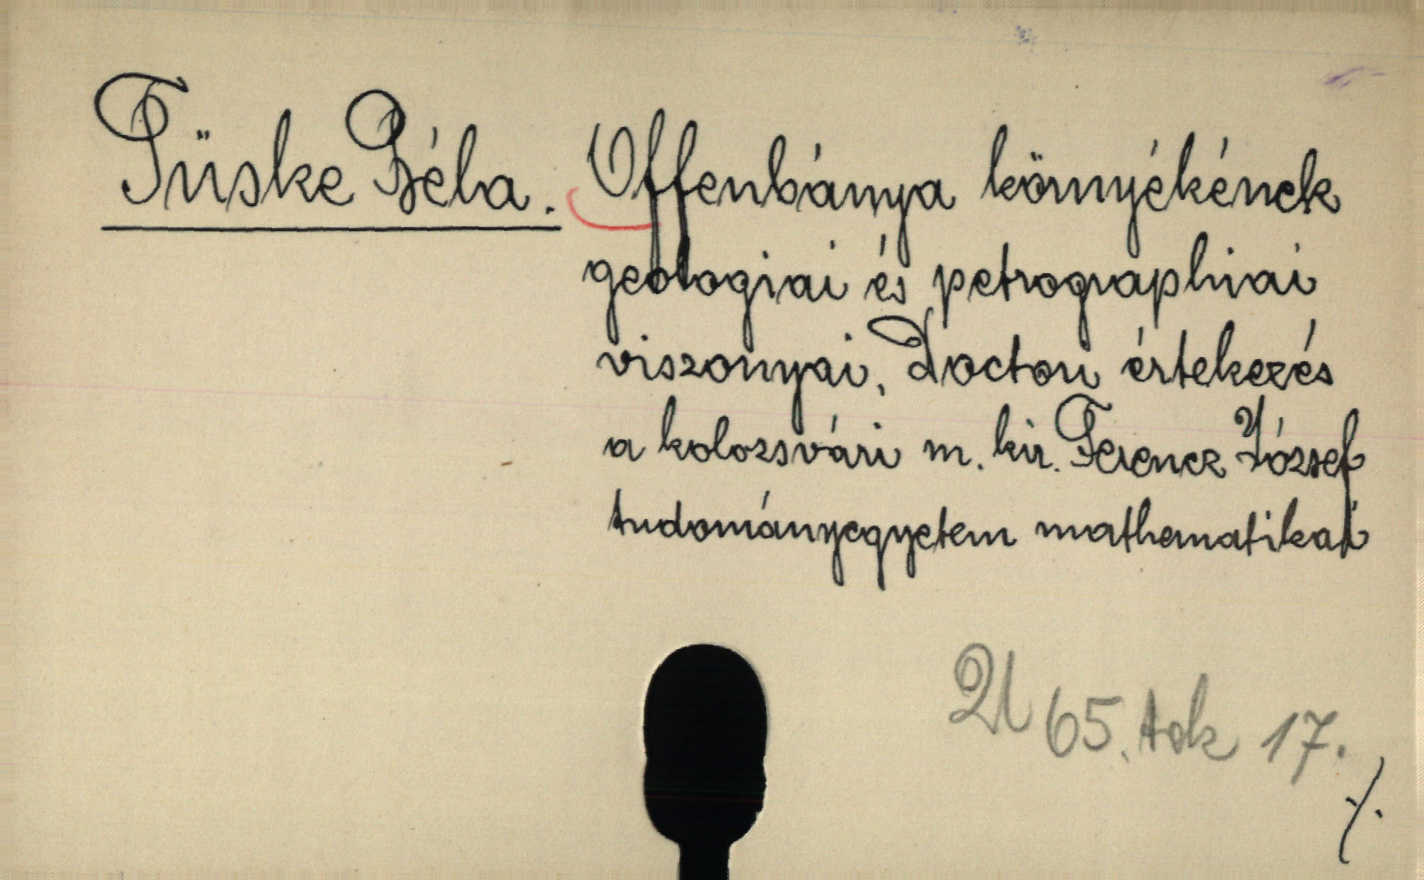 Tüske Béla. Offenbánya környékének
geologiai és petrographiai
viszonyai, Doctori értekezés
a kolozsvári m. kir. Ferencz József
tudományegyetem mathematikai
65. tok 17.